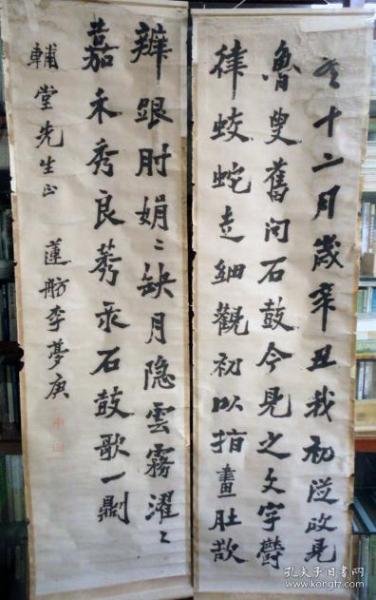 冬十二月歲辛丑我初從政見
魯叟舊問石鼓今見之文字鬱
律蛟蛇走細觀初以指畫肚欲
辨跟肘娟〻缺月隐雲霧濯〻
嘉禾秀良莠 石鼓歌一則
輔堂先生正 蓮舫李夢庚
孔夫子旧书网
kongfz.com